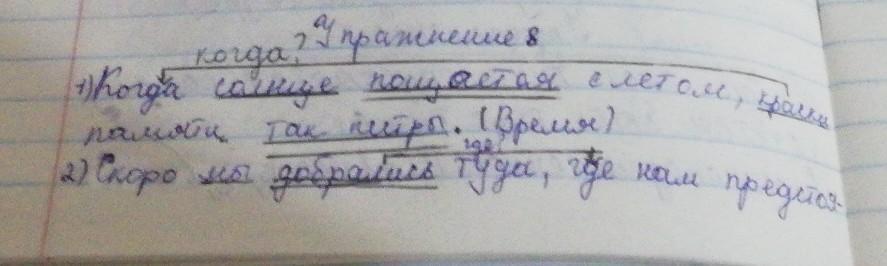 Упражнение 8
когда?
1) Когда солнце пощастоя с летом, краски
памяти так пстры. (Время)
где
2) Скоро мы добрались туда, где нам предстоя-